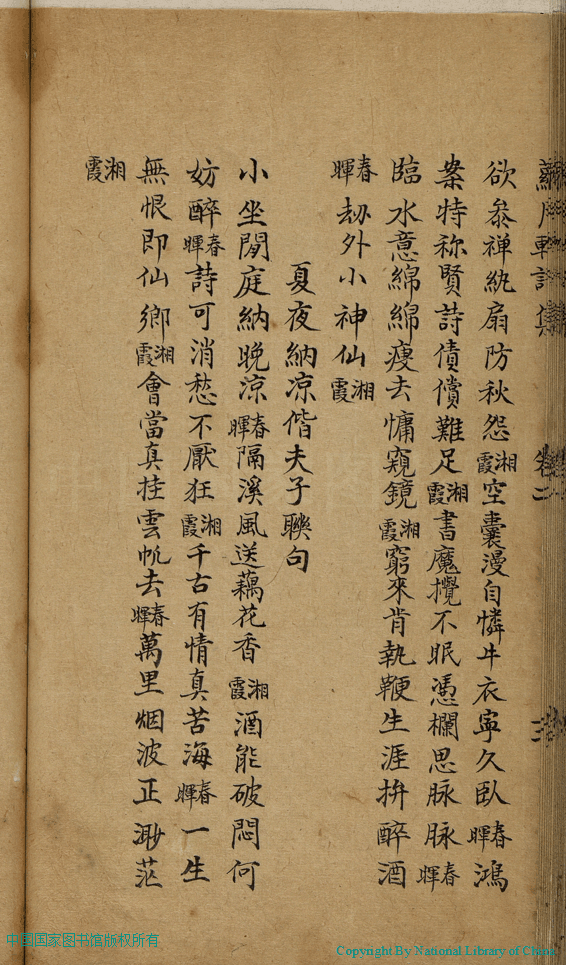 卷二
三
欲叅禪紈扇防秋怨湘霞空囊漫自憐牛衣寧久臥春暉鴻
案特称賢詩債償難足湘霞書魔攪不眠憑欄思脉脉春暉
臨水意綿綿瘦去慵窺鏡湘霞窮來肯執鞭生涯拚醉酒
春暉劫外小神仙湘霞
夏夜納凉偕夫子聨句
小坐閒庭納晚凉春暉隔溪風送藕花香湘霞酒能破悶何
妨醉春暉詩可消愁不厭狂湘霞千古有情真苦海春暉一生
無恨即仙鄉湘霞會當真挂雲帆去春暉萬里烟波正渺茫
湘霞
中国国家图书馆版权所有
Copyright By National Library of China